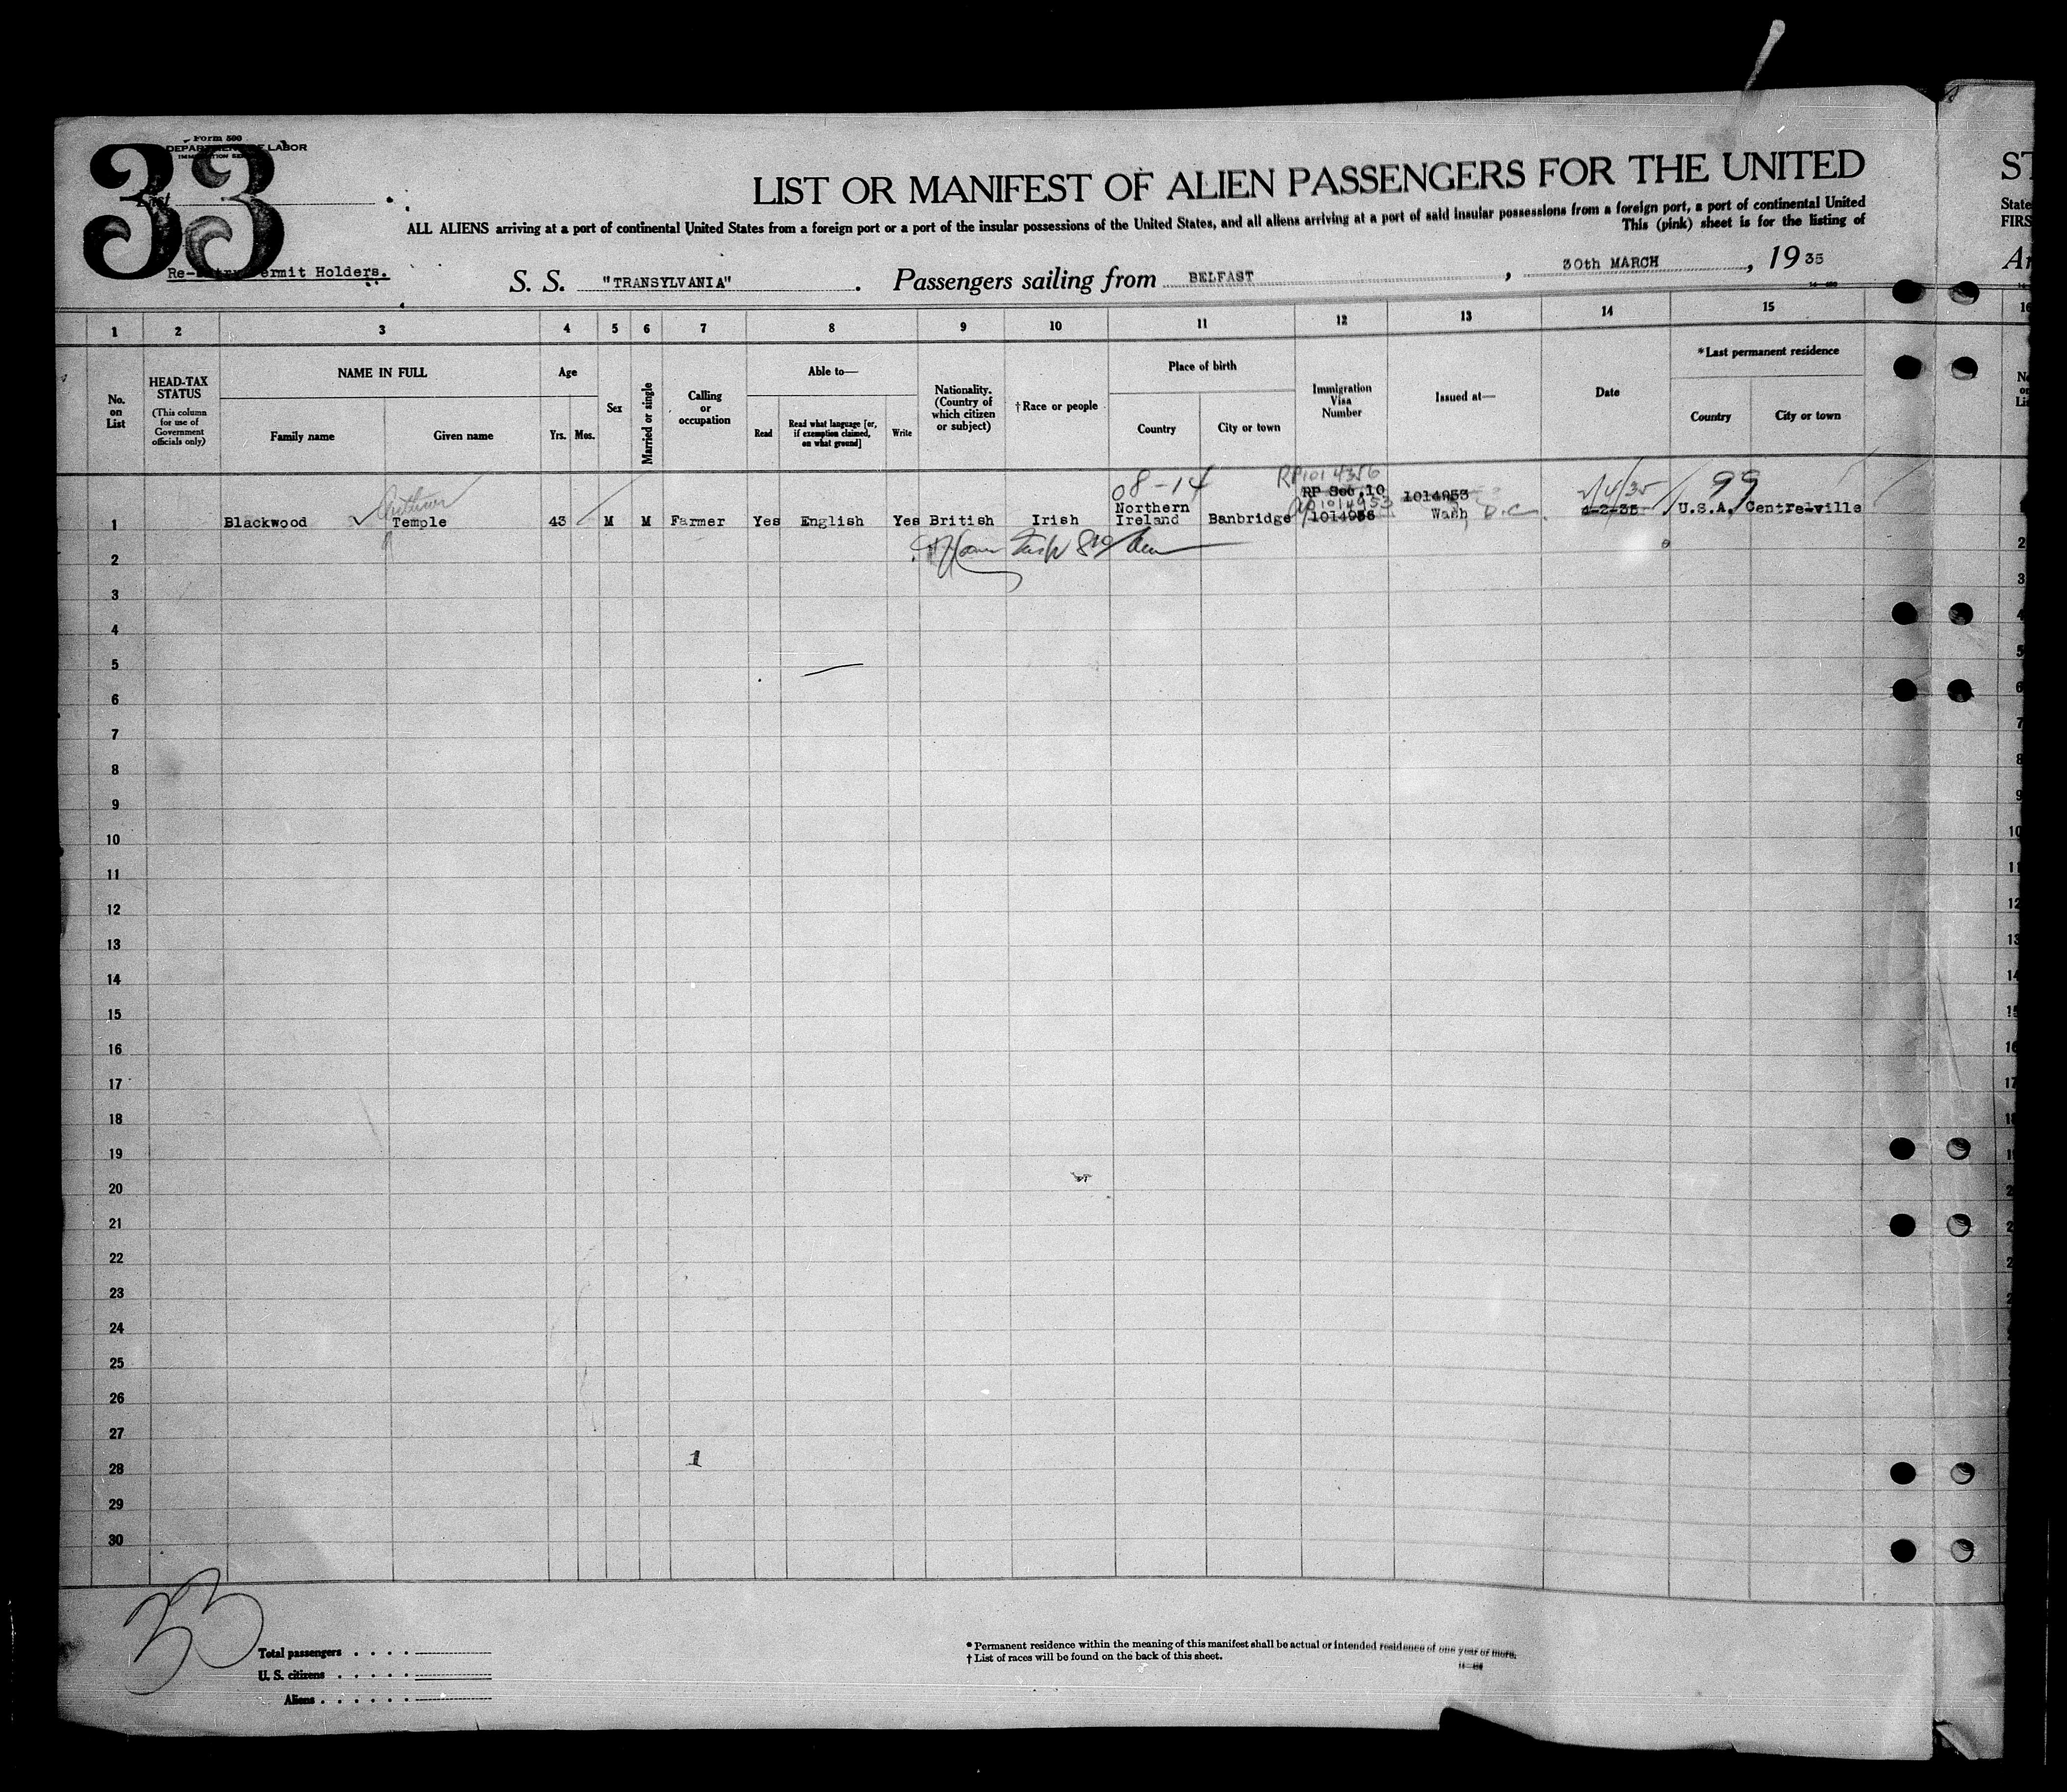 Form 500
DEPARTMENT OF LABOR
33
List
Re-Entry Permit Holders.
LIST OR MANIFEST OF ALIEN PASSENGERS FOR THE UNITED
ST
ALL ALIENS arriving at a port of continental United States from a foreign port or a port of the insular possessions of the United States, and all aliens arriving at a port of said insular possessions from a foreign port, a port of continental United
State
This (pink) sheet is for the listing of
FIRS
S. S. "TRANSYLVANIA" . Passengers sailing from BELFAST , 30th MARCH , 1935
1 2 3 4 5 6 7 8 9 10 11 12 13 14 15
No. on List
HEAD-TAX STATUS
(This column for use of Government officials only)
NAME IN FULL
Family name Given name
Age
Yrs. Mos.
Sex
Married or single
Calling or occupation
Able to—
Read
Read what language [or, if exemption claimed, on what ground]
Write
Nationality. (Country of which citizen or subject)
†Race or people
Place of birth
Country City or town
Immigration Visa Number
Issued at—
Date
*Last permanent residence
Country City or town
08-14 99
1 Blackwood Temple 43 M M Farmer Yes English Yes British Irish Northern Ireland Banbridge 1014953 Wash D.C. 2/4/35 U.S.A. Centreville
2
3
4
5
6
7
8
9
10
11
12
13
14
15
16
17
18
19
20
21
22
23
24
25
26
27
1
28
29
30
33
Total passengers
U. S. citizens
Aliens
* Permanent residence within the meaning of this manifest shall be actual or intended residence of one year or more.
† List of races will be found on the back of this sheet.